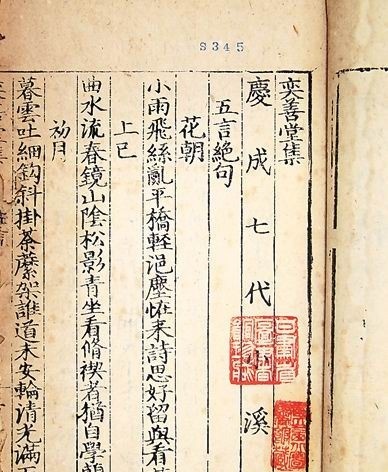 S345
奕善堂集
慶成七代小溪
五言絶句
花朝
小雨飛絲亂平橋輕浥塵恠来詩思好留與看
上巳
曲水流春鏡山陰松影青坐看脩禊者猶自學
初月
暮雲吐細鈎斜掛荼蘼架誰道未安輪清光滿